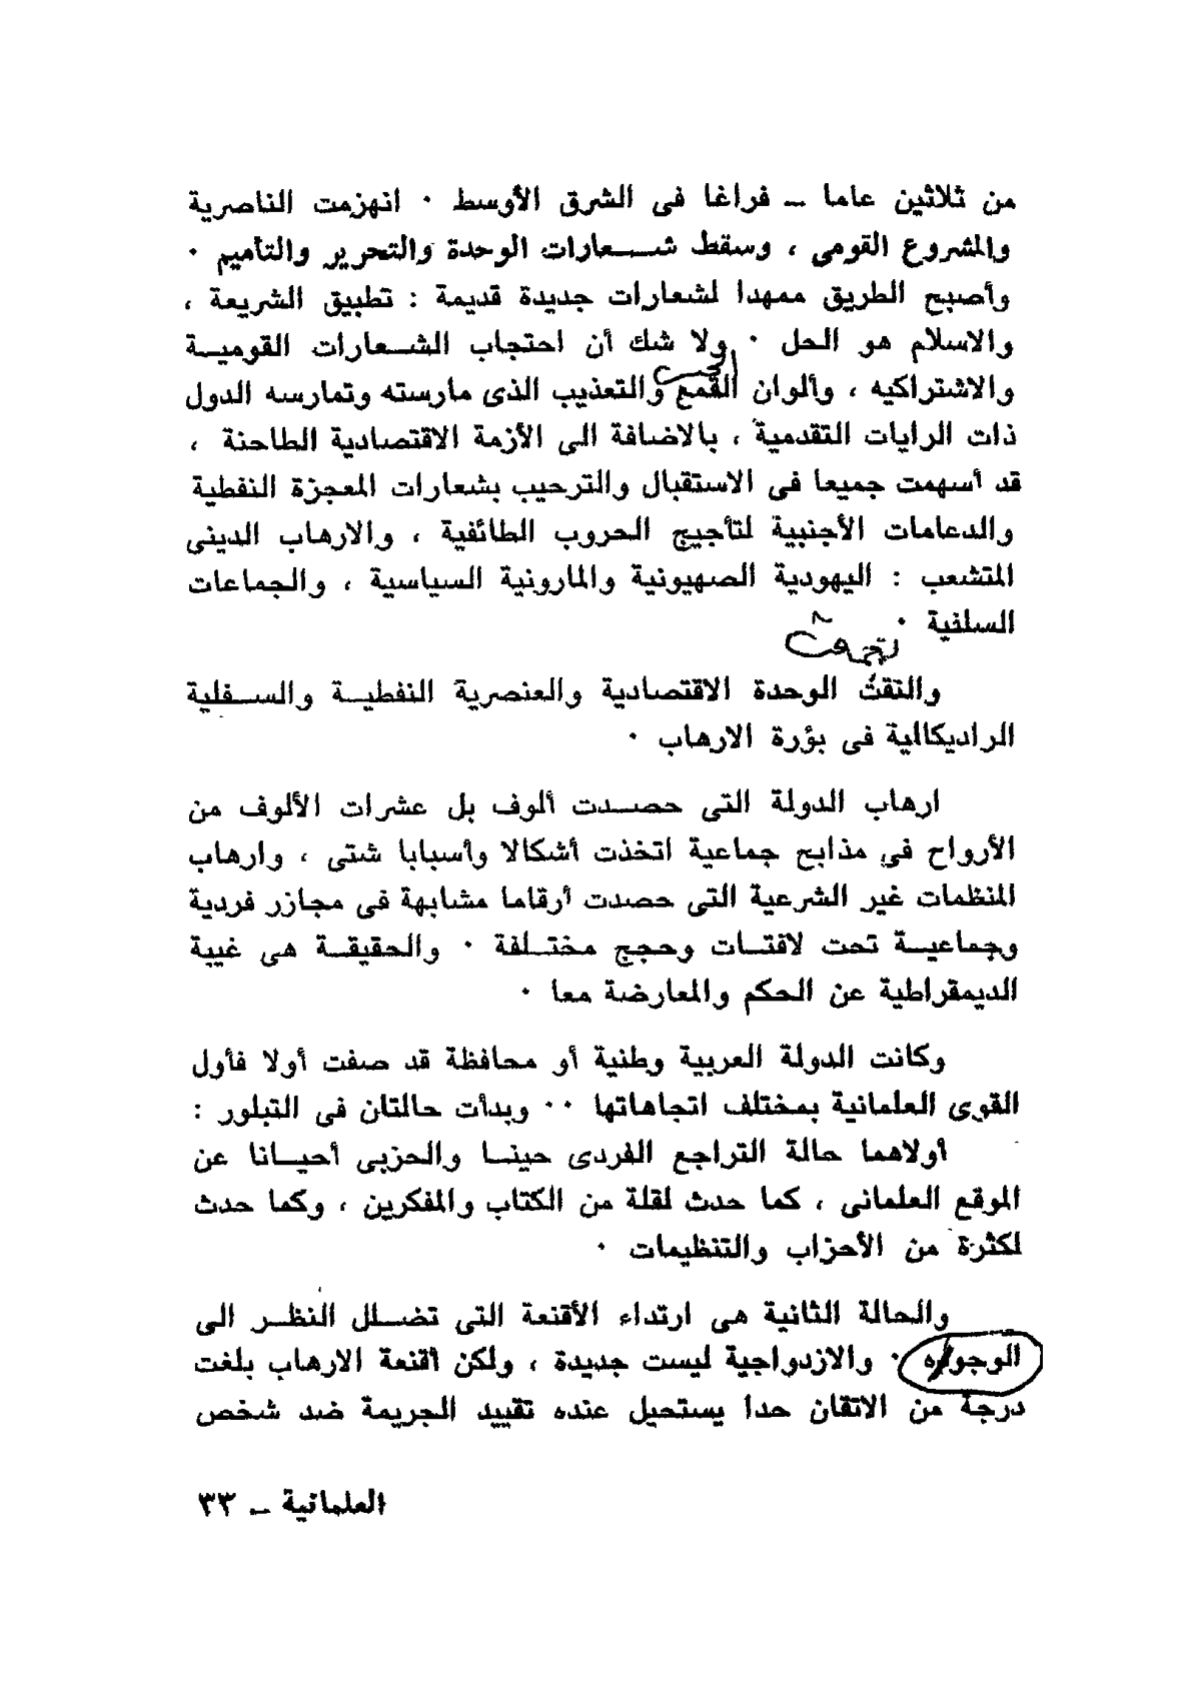 من ثلاثين عاما ــ فراغا فى الشرق الأوسط ٠ انهزمت الناصرية
والمشروع القومى ، وسقط شــعارات الوحدة والتحرير والتأميم ٠
وأصبح الطريق ممهدا لشعارات جديدة قديمة : تطبيق الشريعة ،
والاسلام هو الحل ٠ ولا شك أن احتجاب الشــعارات القوميــة
والاشتراكيه ، وألوان القمع والتعذيب الذى مارسته وتمارسه الدول
ذات الرايات التقدمية ، بالاضافة الى الأزمة الاقتصادية الطاحنة ،
قد أسهمت جميعا فى الاستقبال والترحيب بشعارات المعجزة النفطية
والدعامات الأجنبية لتأجيج الحروب الطائفية ، والارهاب الدينى
المتشعب : اليهودية الصهيونية والمارونية السياسية ، والجماعات
السلفية ٠
والتقت الوحدة الاقتصادية والعنصرية النفطيــة والســفلية
الراديكالية فى بؤرة الارهاب ٠
ارهاب الدولة التى حصــدت ألوف بل عشرات الألوف من
الأرواح فى مذابح جماعية اتخذت أشكالا وأسبابا شتى ، وارهاب
المنظمات غير الشرعية التى حصدت أرقاما مشابهة فى مجازر فردية
وجماعيــة تحت لافتــات وحجج مختــلفة ٠ والحقيقــة هى غيبة
الديمقراطية عن الحكم والمعارضة معا ٠
وكانت الدولة العربية وطنية أو محافظة قد صفت أولا فأول
القوى العلمانية بمختلف اتجاهاتها ٠٠ وبدأت حالتان فى التبلور :
أولاهما حالة التراجع الفردى حينــا والحزبى أحيــانا عن
الموقع العلمانى ، كما حدث لقلة من الكتاب والمفكرين ، وكما حدث
لكثرة من الأحزاب والتنظيمات ٠
والحالة الثانية هى ارتداء الأقنعة التى تضــلل النظــر الى
الوجوه ٠ والازدواجية ليست جديدة ، ولكن أقنعة الارهاب بلغت
درجة من الاتقان حدا يستحيل عنده تقييد الجريمة ضد شخص
العلمانية ــ ٣٣